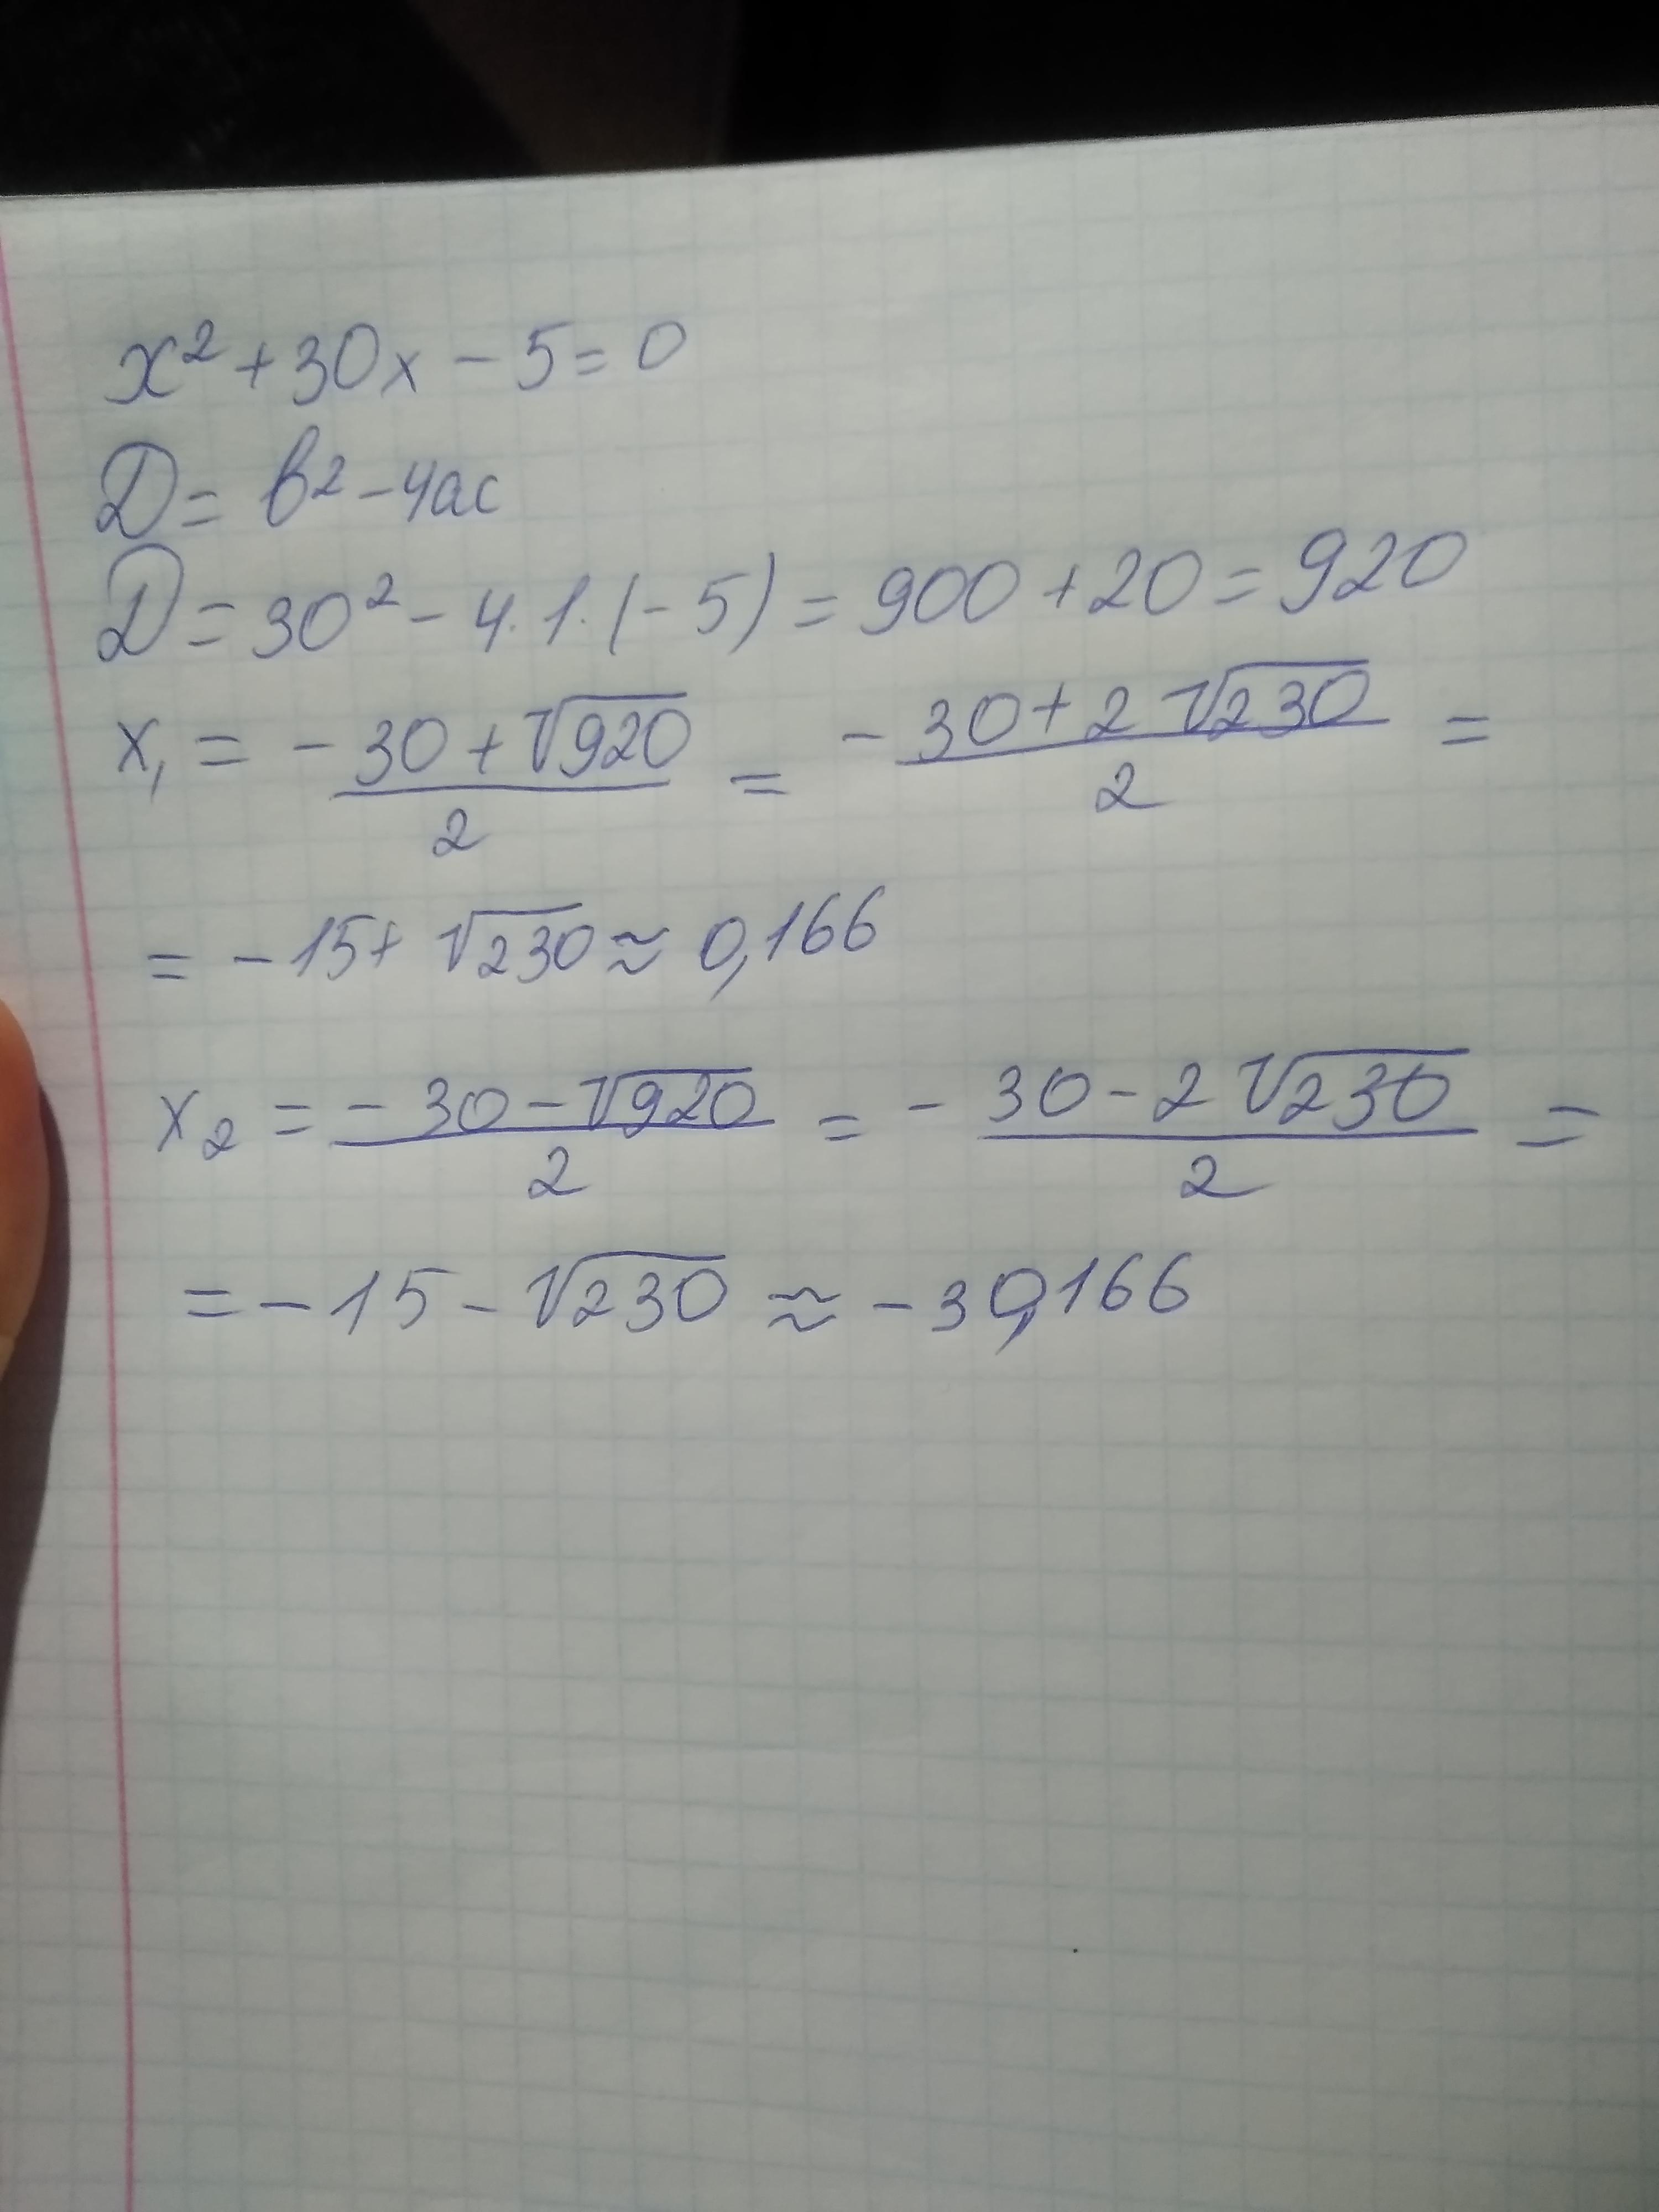 x² + 30x - 5 = 0
D = b² - 4ac
D = 30² - 4·1·(-5) = 900 + 20 = 920
x₁ = -30 + √920 / 2 = -30 + 2√230 / 2 =
= -15 + √230 ≈ 0,166
x₂ = -30 - √920 / 2 = -30 - 2√230 / 2 =
= -15 - √230 ≈ -30,166